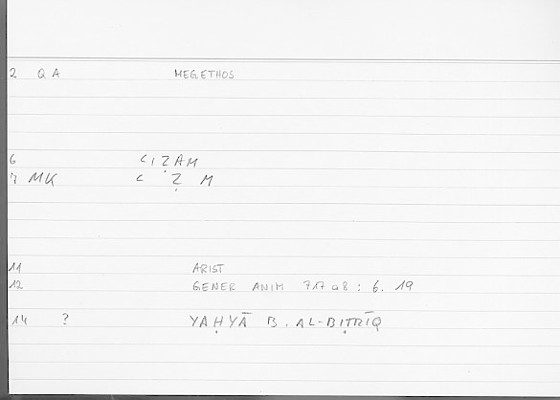 2 QA MEGETHOS
6 ʿIẒAM
7 MK ʿ Ẓ M
11 ARIST
12 GENER ANIM 717a8 : 6. 19
14 ? YAḤYĀ B. AL-BIṬRĪQ